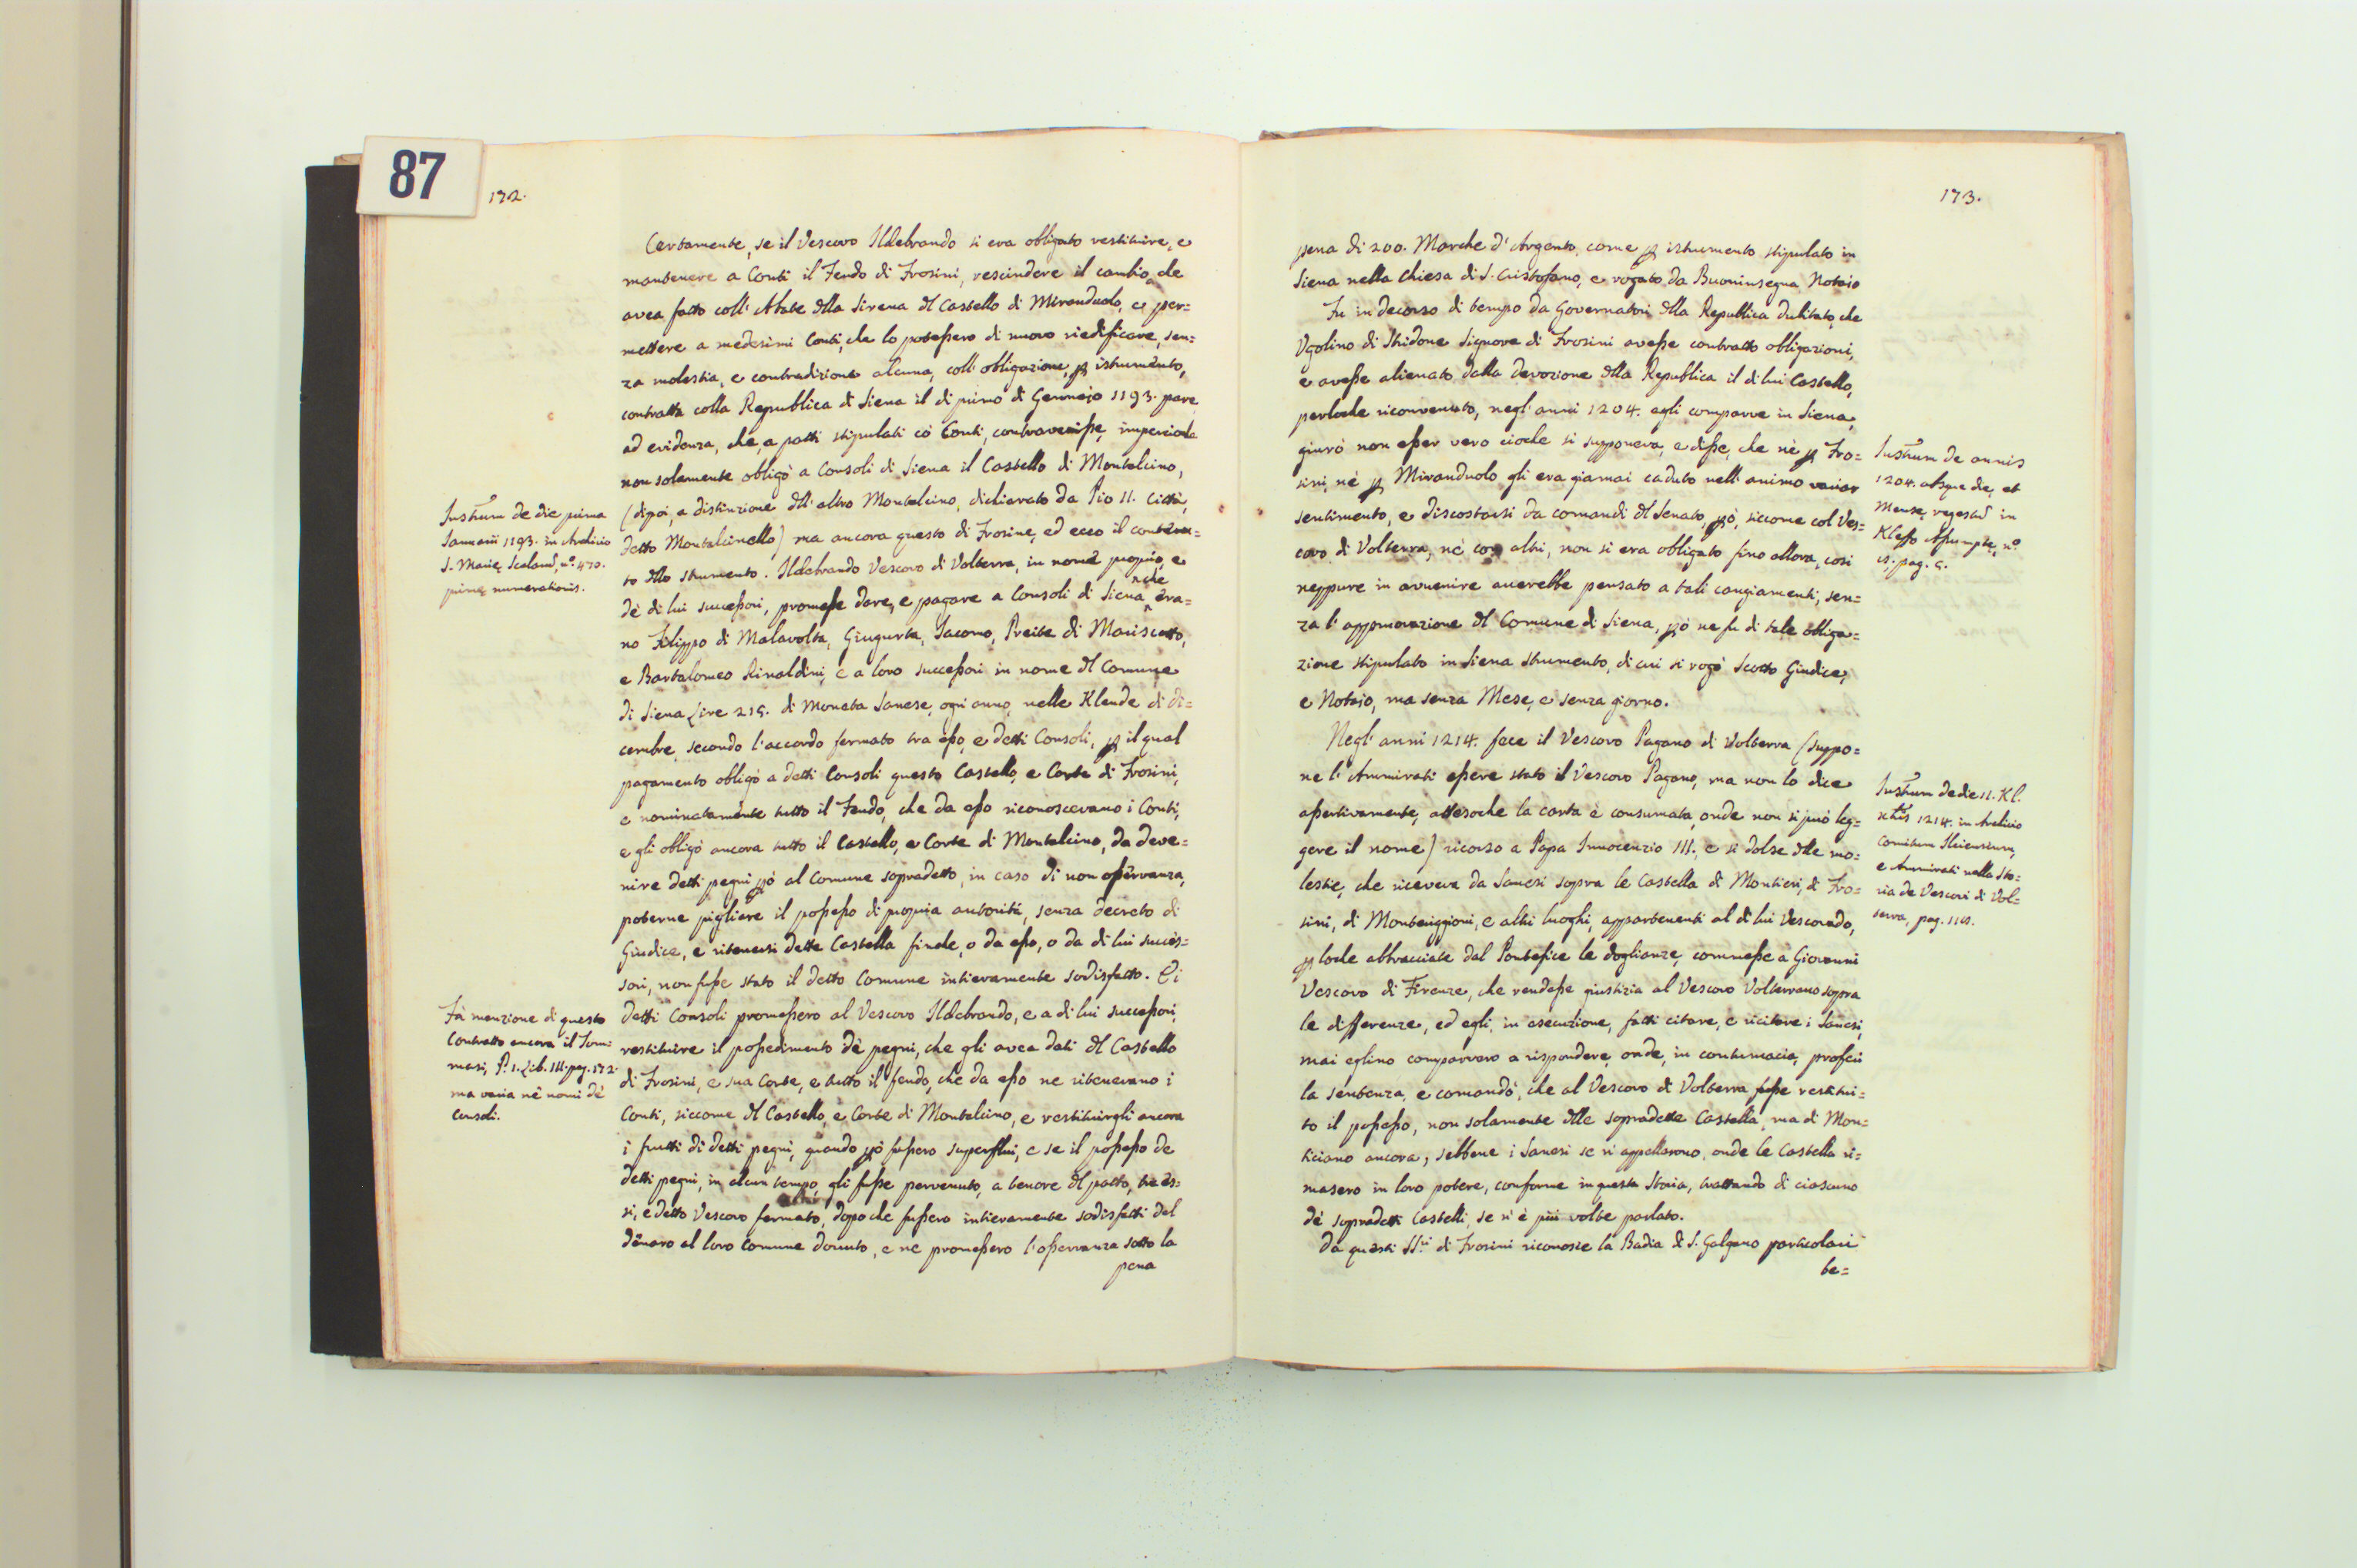 87
172.
Certamente, se il Vescovo Ildebrando si era obligato restituire, e
mantenere a Conti il Feudo di Frosini, rescindere il cambio, che
avea fatto coll' Abate dlla Serena dl Castello di Miranduolo, e per=
mettere a medesimi Conti, che lo potessero di nuovo riedificare, sen=
za molestia, e contradizione alcuna, coll' obligazione, p istrumento,
contratta colla Republica di Siena il di primo di Gennajo 1193. pare
ad evidenza, che, a patti stipulati có Conti, contravenisse, imperciocche
non solamente obligò a Consoli di Siena il Castello di Montalcino,
(dipoi, a distinzione dll' altro Montalcino, dichierato da Pio II. Città,
detto Montalcinello) ma ancora questo di Frosine, ed ecco il contenu=
to dllo strumento. Ildebrando Vescovo di Volterra, in nome proprio, e
dè di lui successori, promesse dare, e pagare a Consoli di Siena, che era=
no Filippo di Malavolta, Giugurta, Jacomo, Preite di Mariscotto,
e Bartalomeo Rinaldini, e a loro successori in nome dl Comune
di Siena Lire 215. di Moneta Sanese, ogni anno, nelle Klende di di=
cembre, secondo l'accordo fermato tra esso, e detti Consoli, p il qual
pagamento obligò a detti Consoli questo Castello, e Corte di Frosini,
e nominatamente tutto il Feudo, che da esso riconoscevano i Conti,
e gli obligò ancora tutto il Castello, e Corte di Montalcino, da deve=
nire detti pegni pò al Comune sopradetto, in caso di non osservanza,
poterne pigliare il possesso di propria autorità, senza decreto di
Giudice, e ritenersi dette Castella finche, o da esso, o da di lui succes=
sori, non fusse stato il detto Comune intieramente sodisfatto. E i
detti Consoli promessero al Vescovo Ildebrando, e a di lui successori,
restituire il possedimento dè pegni, che gli avea dati dl Castello
di Frosini, e sua Corte, e tutto il feudo, che da esso ne ritenevano i
Conti, siccome dl Castello, e Corte di Montalcino, e restituirgli ancora
i frutti di detti pegni, quando pò fussero superflui, e se il possesso de
detti pegni, in alcun tempo, gli fusse pervenuto, a tenore dl patto, tra es=
si, e detto Vescovo fermato, dopo che fussero intieramente sodisfatti del
denaro al loro Comune dovuto, e ne promessero l'osservanza sotto la
pena
Instrum de die prima
Januarii 1193. in Archivio
S. Marie Scalarū, n.º 470.
prime numerationis.
Fà menzione di questo
Contratto ancora il Tom=
masi, P. 1. Lib. III. pag. 172
ma varia nè nomi dè
Consoli.
173.
pena di 200. Marche d' Argento, come p istrumento stipulato in
Siena nella Chiesa di S. Cristofano, e rogato da Buoninsegna Notaio
Fu in decorso di tempo da Governatori dlla Republica dubitato, che
Ugolino di Stridone Signore di Frosini avesse contratto obligazioni,
e avesse alienato dalla devozione dlla Republica il di lui Castello,
perloche riconvenuto, negl' anni 1204. egli comparve in Siena,
giurò non esser vero cioche si supponeva, e disse, che nè p Fro=
sini, nè p Miranduolo gli era giamai caduto nell' animo variar
sentimento, e discostarsi da comandi dl Senato, pò, siccome col Ves=
covo di Volterra, nè con altri, non si era obligato fino allora, così
neppure in avvenire averebbe pensato a tali cangiamenti, sen=
za l' approvazione dl Comune di Siena, pò ne fu di tale obliga=
zione stipulato in Siena strumento, di cui si rogò Scotto Giudice,
e Notajo, ma senza Mese, e senza giorno.
Negl' anni 1214. fece il Vescovo Pagano di Volterra (suppo=
ne l' Ammirati essere stato il Vescovo Pagano, ma non lo dice
assertivamente, attesoche la carta è consumata, onde non si può leg=
gere il nome) ricorso a Papa Innocenzio III., e si dolse dlle mo=
lestie, che riceveva da Sanesi sopra le Castella di Montieri, di Fro=
sini, di Monteriggioni, e altri luoghi, appartenenti al di lui Vescovado,
p loche abbracciate dal Pontefice le doglianze, commesse a Giovanni
Vescovo di Firenze, che rendesse giustizia al Vescovo Volterrano sopra
le differenze, ed egli, in esecuzione, fatti citare, e ricitare i Sanesi,
mai eglino comparvero a rispondere, onde, in contumacia, proferì
la sentenza, e comandò, che al Vescovo di Volterra fusse restitui=
to il possesso, non solamente dlle sopradette Castella, ma di Mon=
ticiano ancora, sebbene i Sanesi se ni appellarono, onde le Castella ri=
masero in loro potere, conforme in questa Storia, trattando di ciascuno
dè sopradetti Castelli, se n' è più volte parlato.
Da questi SS.ri di Frosini riconosce la Badia di S. Galgano particolari
be=
Instrum de annis
1204. absque die, et
Mense, regestrū in
Kleffo Assumpte, n.º
pag.
Instrum de die 11. Kl.
1214. in Archivio
Comitum
e Ammirati nella Sto=
ria de Vescovi di Vol=
terra, pag.